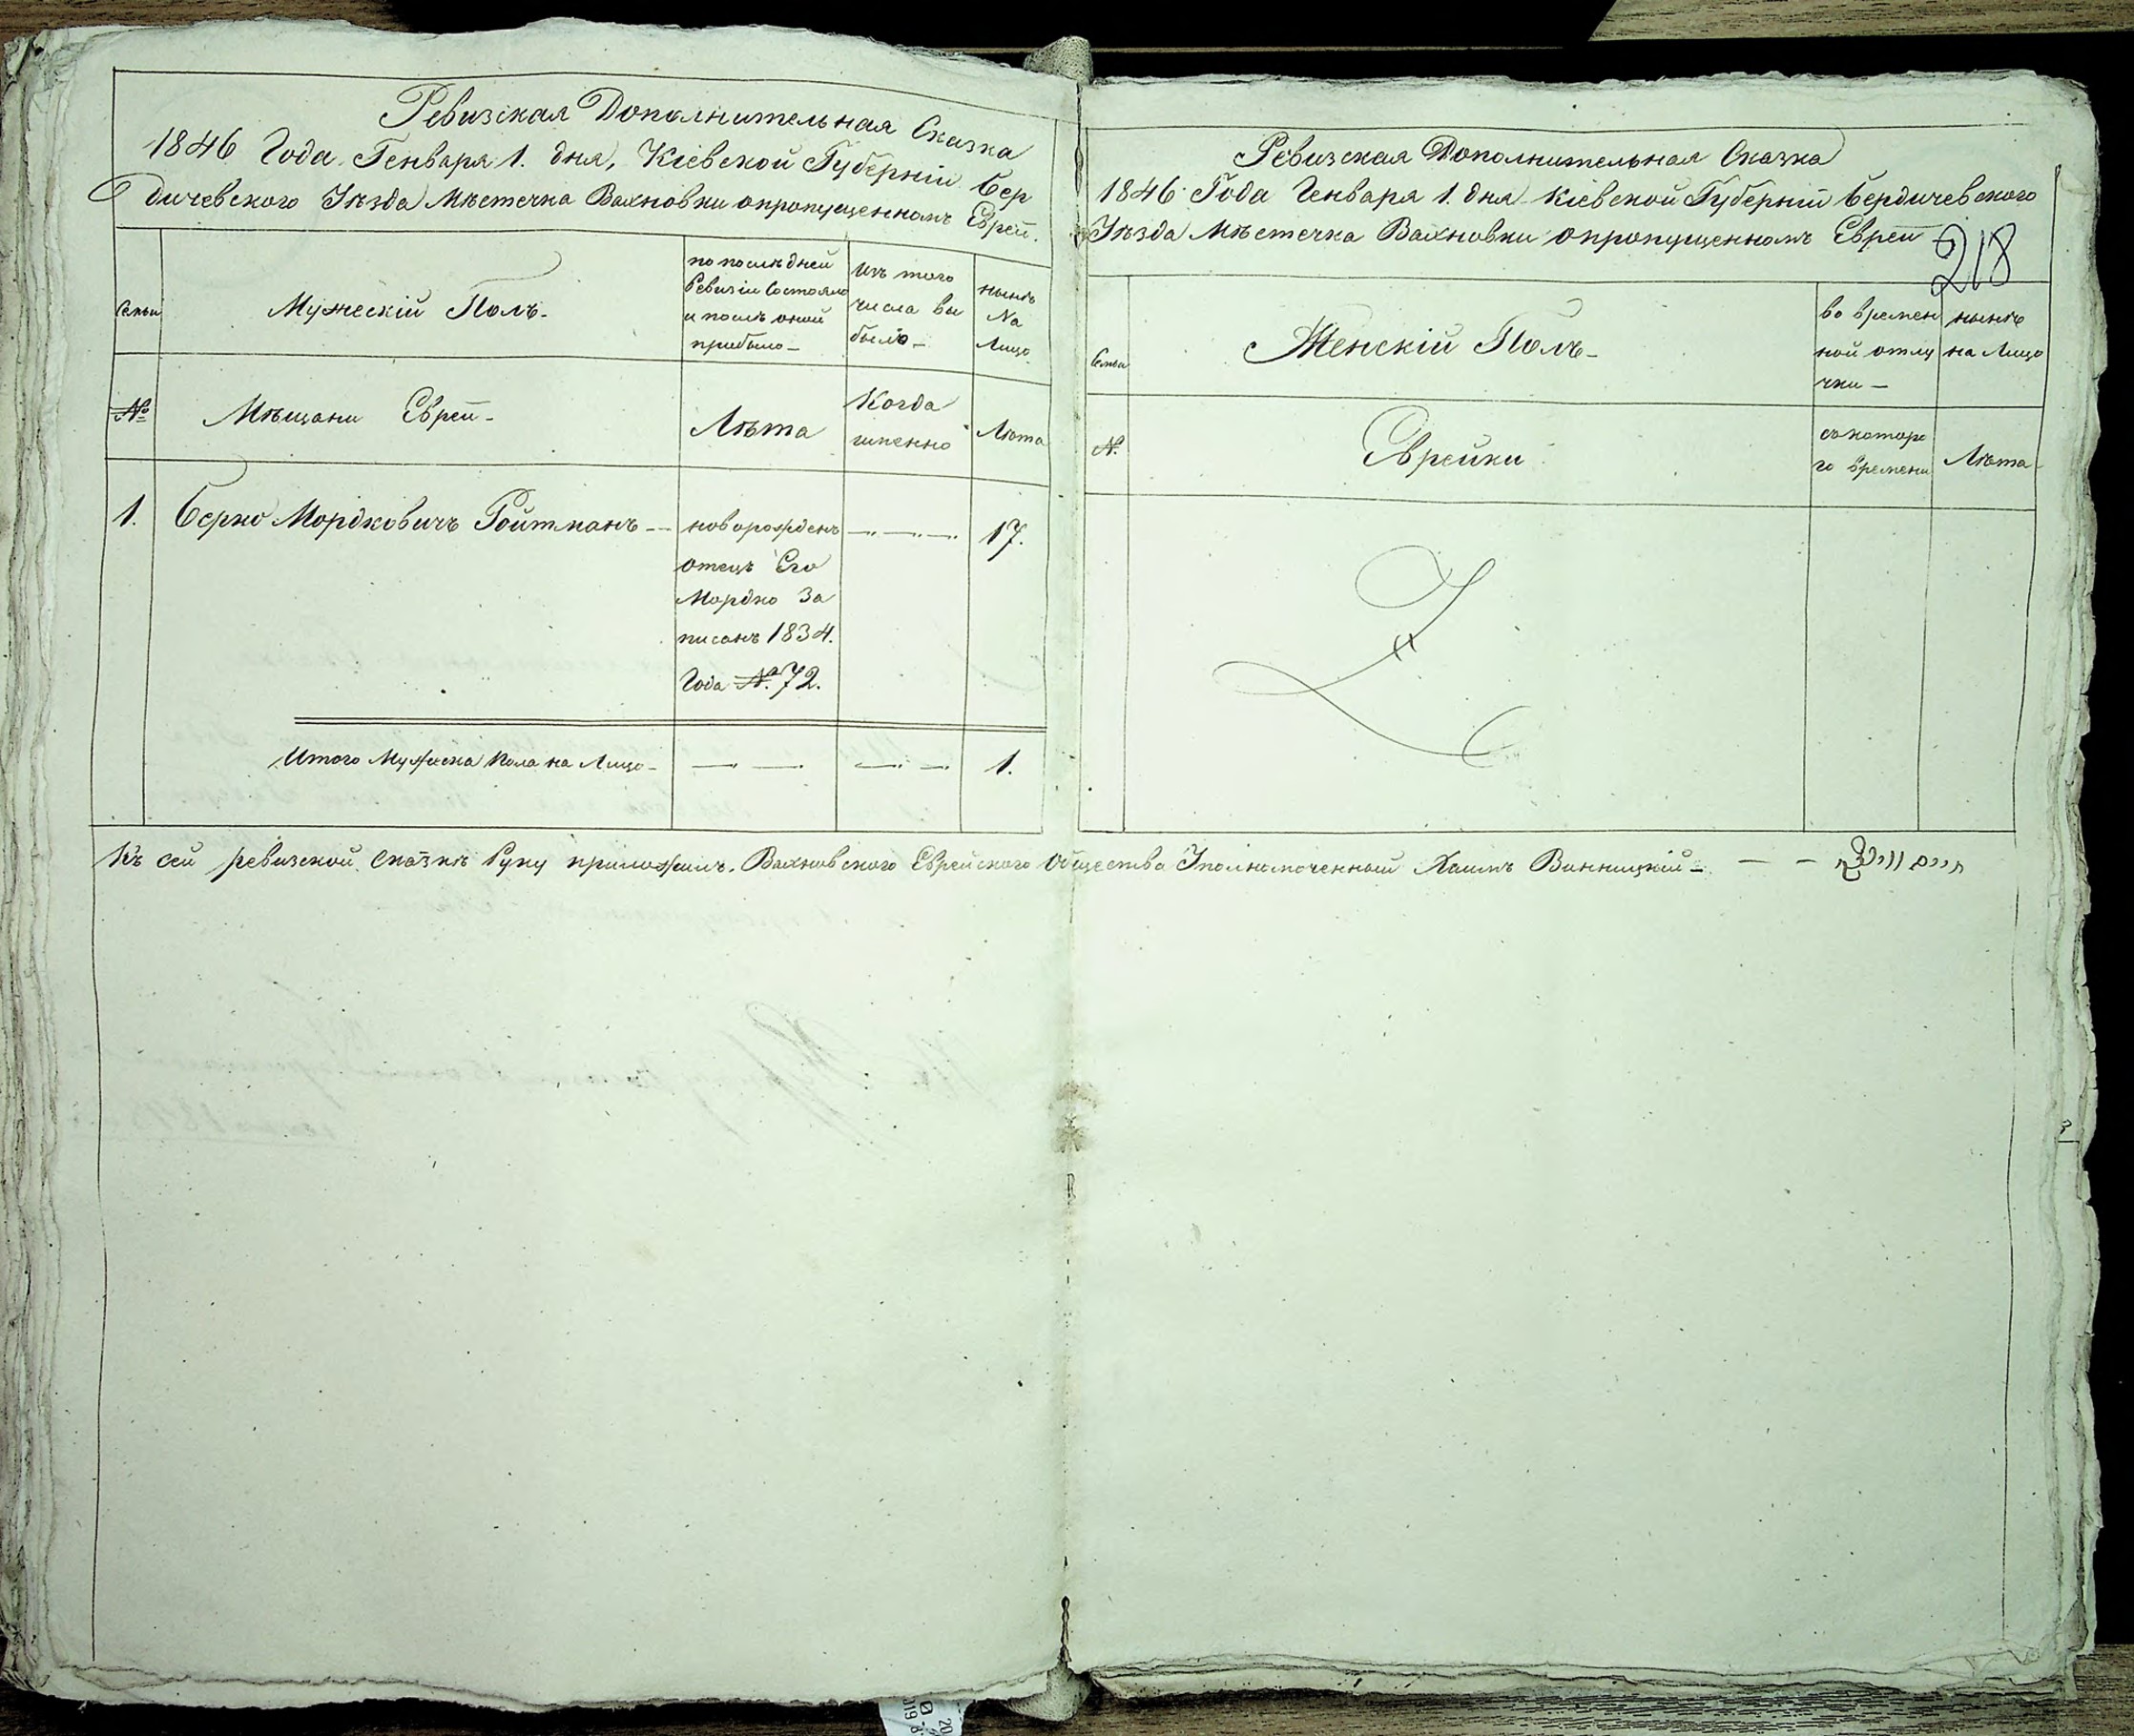 Ревизская Дополнительная Сказка
1846 Года Генваря 1. дня, Кіевской Губерніи Бер
дичевского Уѣзда Мѣстечка Вахновки опропущенномъ Евреи.
Семьи
Мужескій Полъ.
по послѣдней
Ревизіи Состояло
и послѣ оной
прибыло
Изъ того
числа вы
было
нынѣ
На
Лицо
№
Мѣщани Евреи
Лѣта
Когда
имменно
Лѣта
1.
Берко Мордковичъ Ройтманъ
новорожденъ
отецъ Его
Мордко За
писанъ 1834.
Года №. 72.
17.
Итого Мужеска Пола на Лицо
1.
Ревизская Дополнительная Сказка
1846 Года Генваря 1. дня Кіевской Губерніи Бердичевского
Уѣзда Мѣстечка Вахновки опропущенномъ Евреи
218
Семьи
Женскій Полъ
во времен
ной отлу
чки
нынѣ
на Лицо
№.
Еврейки
съ которо
го времени
Лѣта
Къ сей ревизской Сказкѣ Руку приложилъ. Вахновского Еврейского Общества Уполномоченный Хаимъ Винницкій חיים